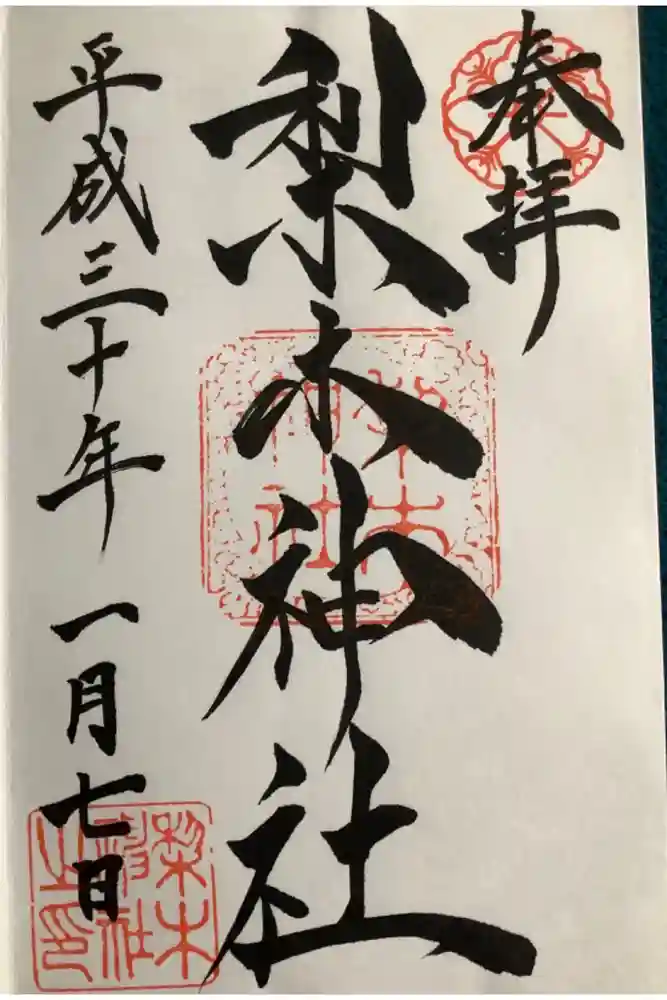 奉拝
梨木神社
平成三十年 一月七日
梨木
神社
梨木
神社
之印